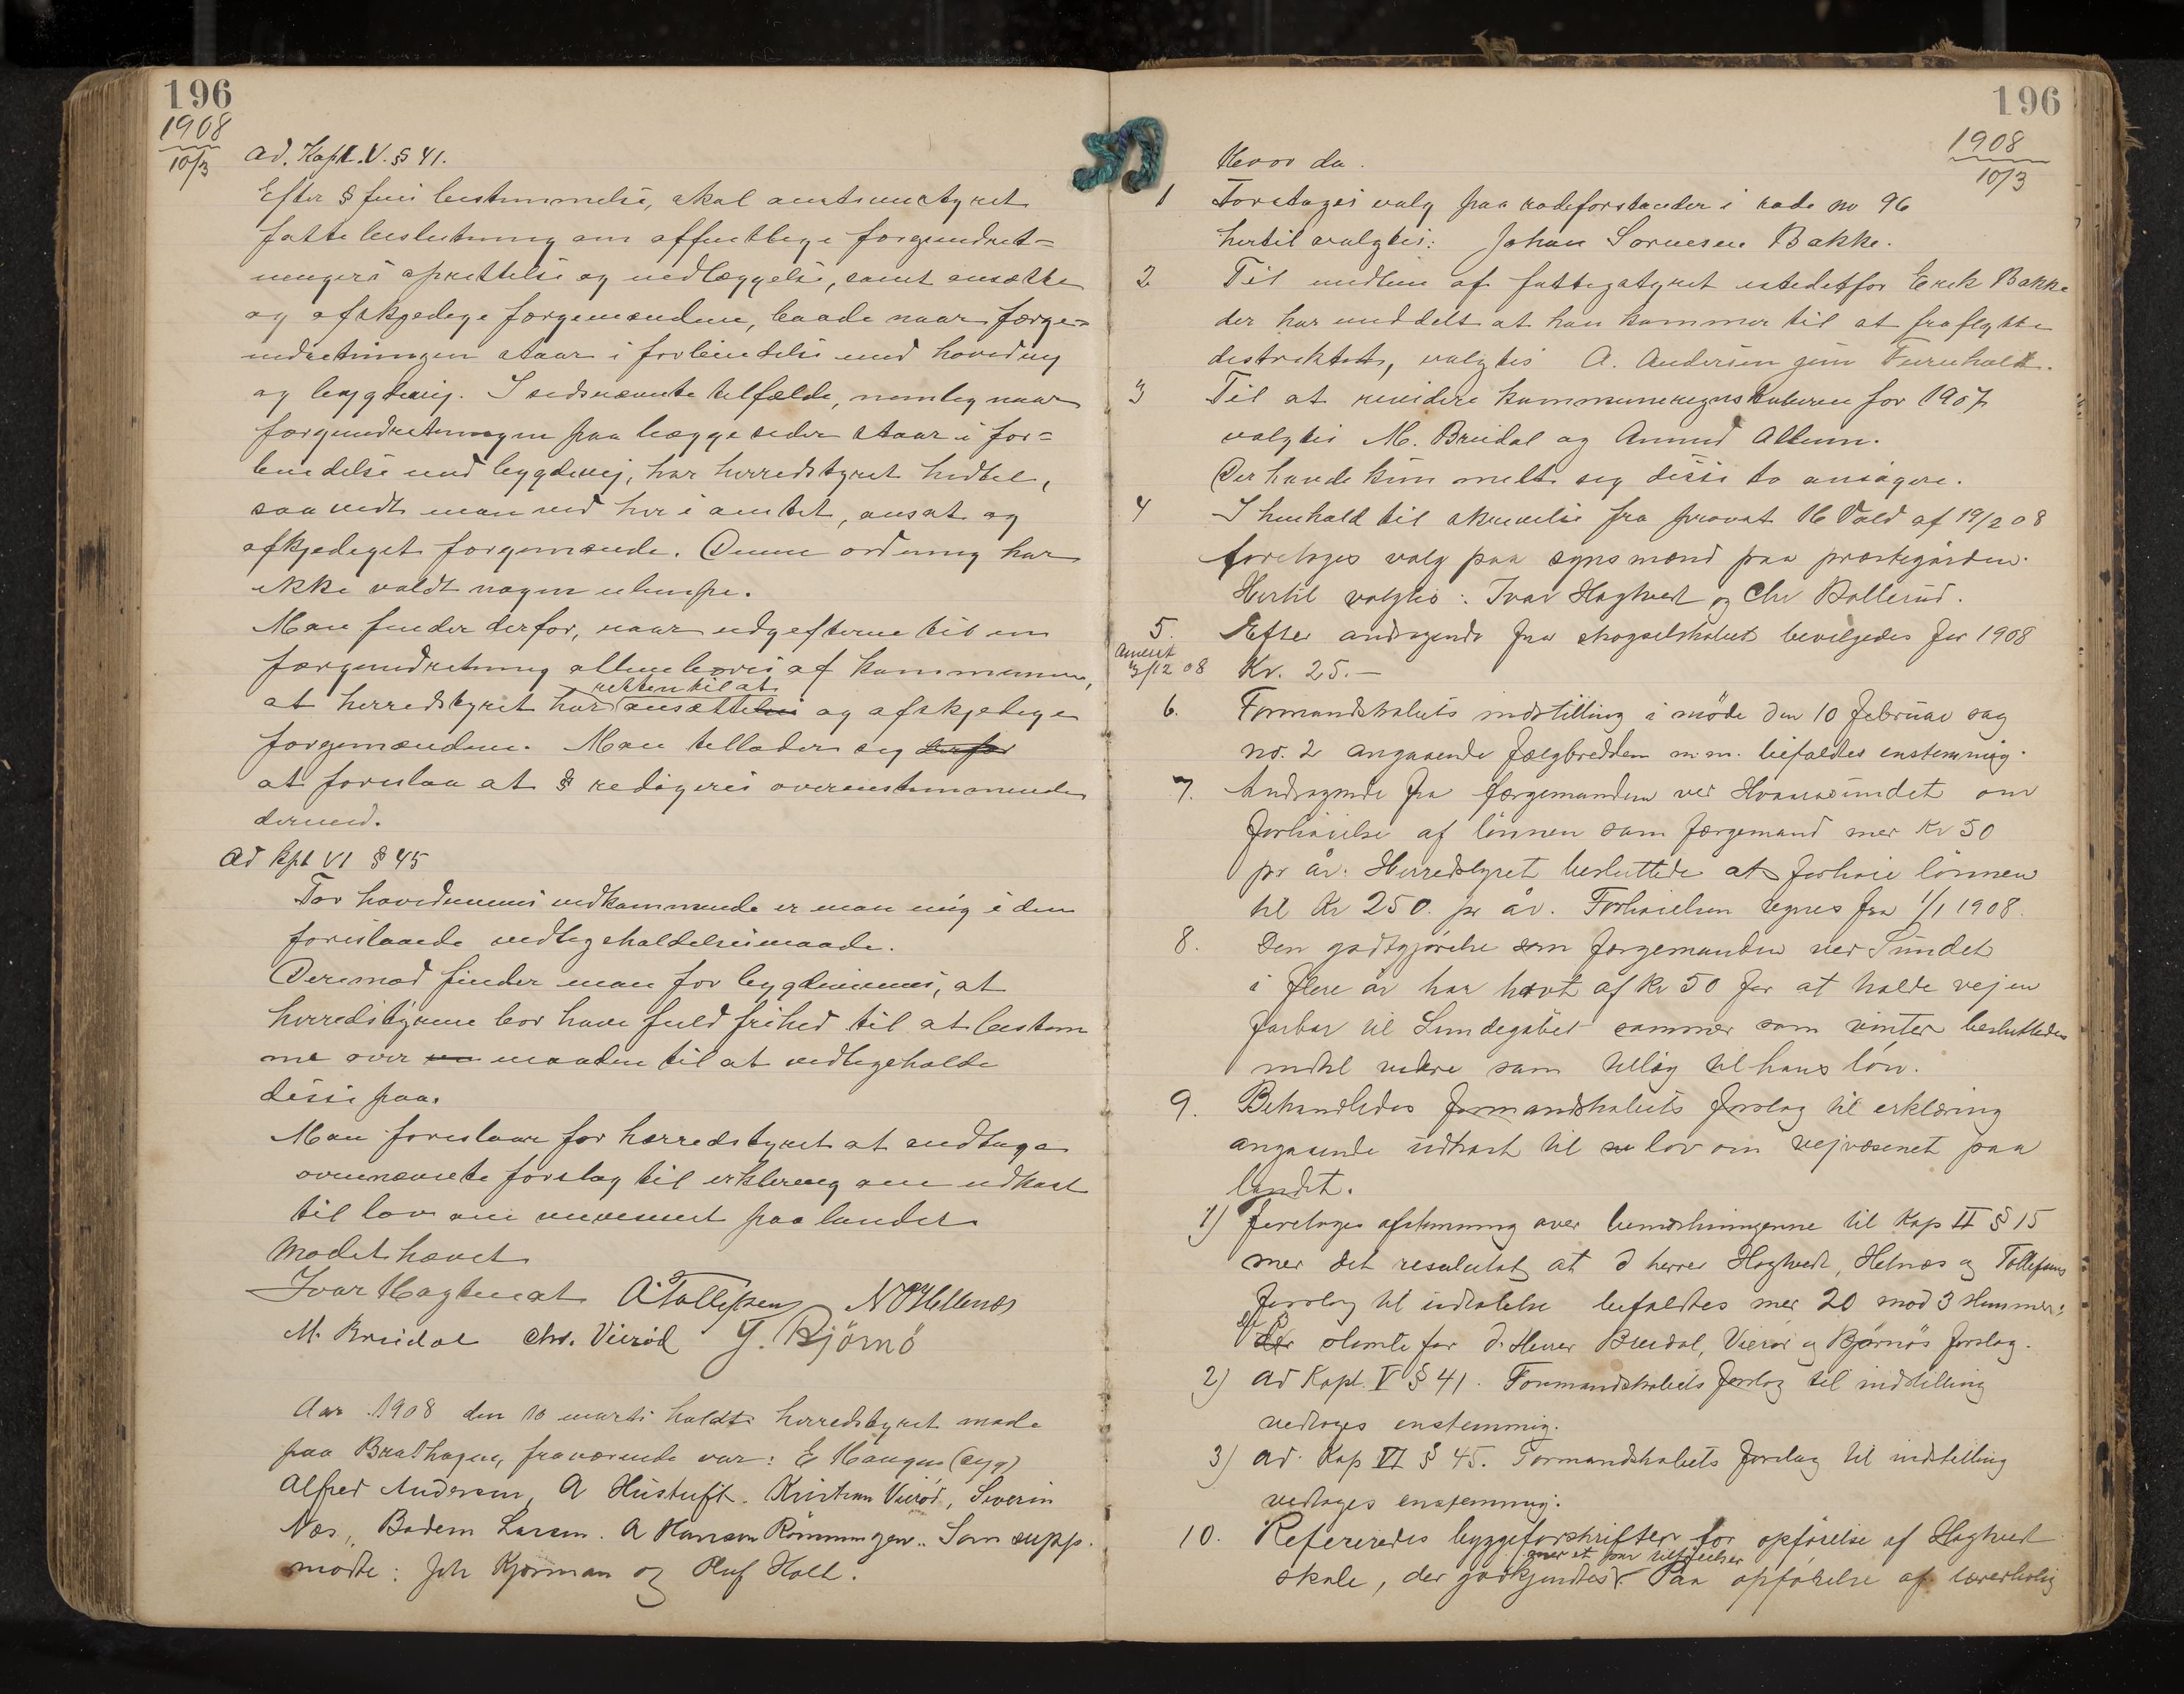 196
1908
10/3
ad. Kapt. V. § 41.
Efter § fins bestemmelse, skal amtsmstyret
fatte beslutning om offentlige færgeindret=
ningers oprettelse og nedlæggelse, samt ansætte
og afskjedige færgemændene, baade naar færge=
indretningen staar i forbindelse med hovedvej
og bygdevej. I sidsnævnte tilfælde, nemlig naar
færgeindretningen paa begge sider staar i for=
bindelse med bygdevej, har herredstyret hidtil,
saa vidt man ved her i amtet, ansat og
afskjediget færgemænde. Denne ordning har
ikke voldt nogen ulempe.
Man finder derfor, naar udgifterne til en
færgeindretning alene bæres af kommunen,
retten til at
at herredstyret har ansættelse og afskjedige
færgemændene. Man tillader sig derfor
at foreslaa at § redigeres overensstemmende
dermed.
Ad Kpt VI § 45
For hovedveienes vedkommende er man enig i den
foreslaaede vedligeholdelsesmaade.
Derimod finder man for bygdeveienes, at
herredstyrene bør have fuld frihed til at bestem
me over maaden til at vedligeholde
disse paa.
Man foreslaar for herredstyret at andtage
ovennævnte forslag til erklæring om udkast
til lov om veivesenet paa landet.
Mødet hævet
Ivar Hagtvedt A Tollefsen N P Hellenes
M. Breidal Chr. Vierød G. Bjørnø
Aar 1908 den 10 marts holdt herredstyret møde
paa Brathagen, fraværende var: E Haugen (syg)
Alfred Andersen, A Hustuft. Kristian Vierød, Severin
Næs, Badem Larsen. A Hansen Rønningen. Som supp.
mødte: Joh Kjørman og Oluf Holt.
196
1908
10/3
Hvor da.
1 Foretages valg paa rodeforstander i rode no 96
hertil valgtes: Johan Sørnesen Bakke.
2 Til medlem af fattigstyret istedetfor Erik Bakke
der har meddelt at han kommer til at fraflytte
distriktet, valgtes A. Andersen Furuholt.
3 Til at revidere kommuneregnskaberne for 1907
valgtes M. Breidal og Amund Allum.
Der havde kun meldt sig disse to ansøgere.
4 I henhold til skrivelse fra provst H Vold af 19/2 08
foretages valg paa synsmænd paa prestegården.
Hertil valgtes: Ivar Hagtvedt og Chr Bollerud.
5. Efter andragende fra skogselskabet bevilgedes for 1908
anvist 3/12 08 Kr. 25.—
6. Formandskabets indstilling i møde den 10 februar sag
no. 2 angaaende fælgbredden m.m. bifaldtes enstemmig.
7. Andragende fra færgemanden ved Hvaarasundet om
forhøielse af lønnen som færgemand med Kr 50
pr år. Herredstyret besluttede at forhøie lønnen
til Kr 250. pr år. Forhøielsen regnes fra 1/1 1908.
8. Den godtgjørelse som færgemanden ved Sundet
i flere år har havt af Kr 50 for at holde vejen
farbar til Lundegabet sommer som vinter besluttedes
indtil videre som tillæg til hans løn.
9. Behandledes formandskabets forslag til erklæring
angaaende udkast til lov om vejvæsenet paa
landet.
1) foretages afstemning over bemærkningerne til Kap II § 15
med det resultat, at d herrer Hagtvedt, Helnæs og Tollefsens
forslag til udtalelse bifaldtes med 20 mod 3 stemmer;
de 3
der stemte for d. Herrer Breidal, Vierød og Bjørnøs forslag.
2) ad Kapt. V § 41. Formandskabets forslag til indstilling
vedtages enstemmig.
3) ad. Kap VI § 45. Formandskabets forslag til indstilling
vedtages enstemmig.
10. Refereredes byggeforskrifter for opførelse af Hagtvedt
med et par tilføielser
skole, der godkjendtes. Paa opførelse af lærerbolig